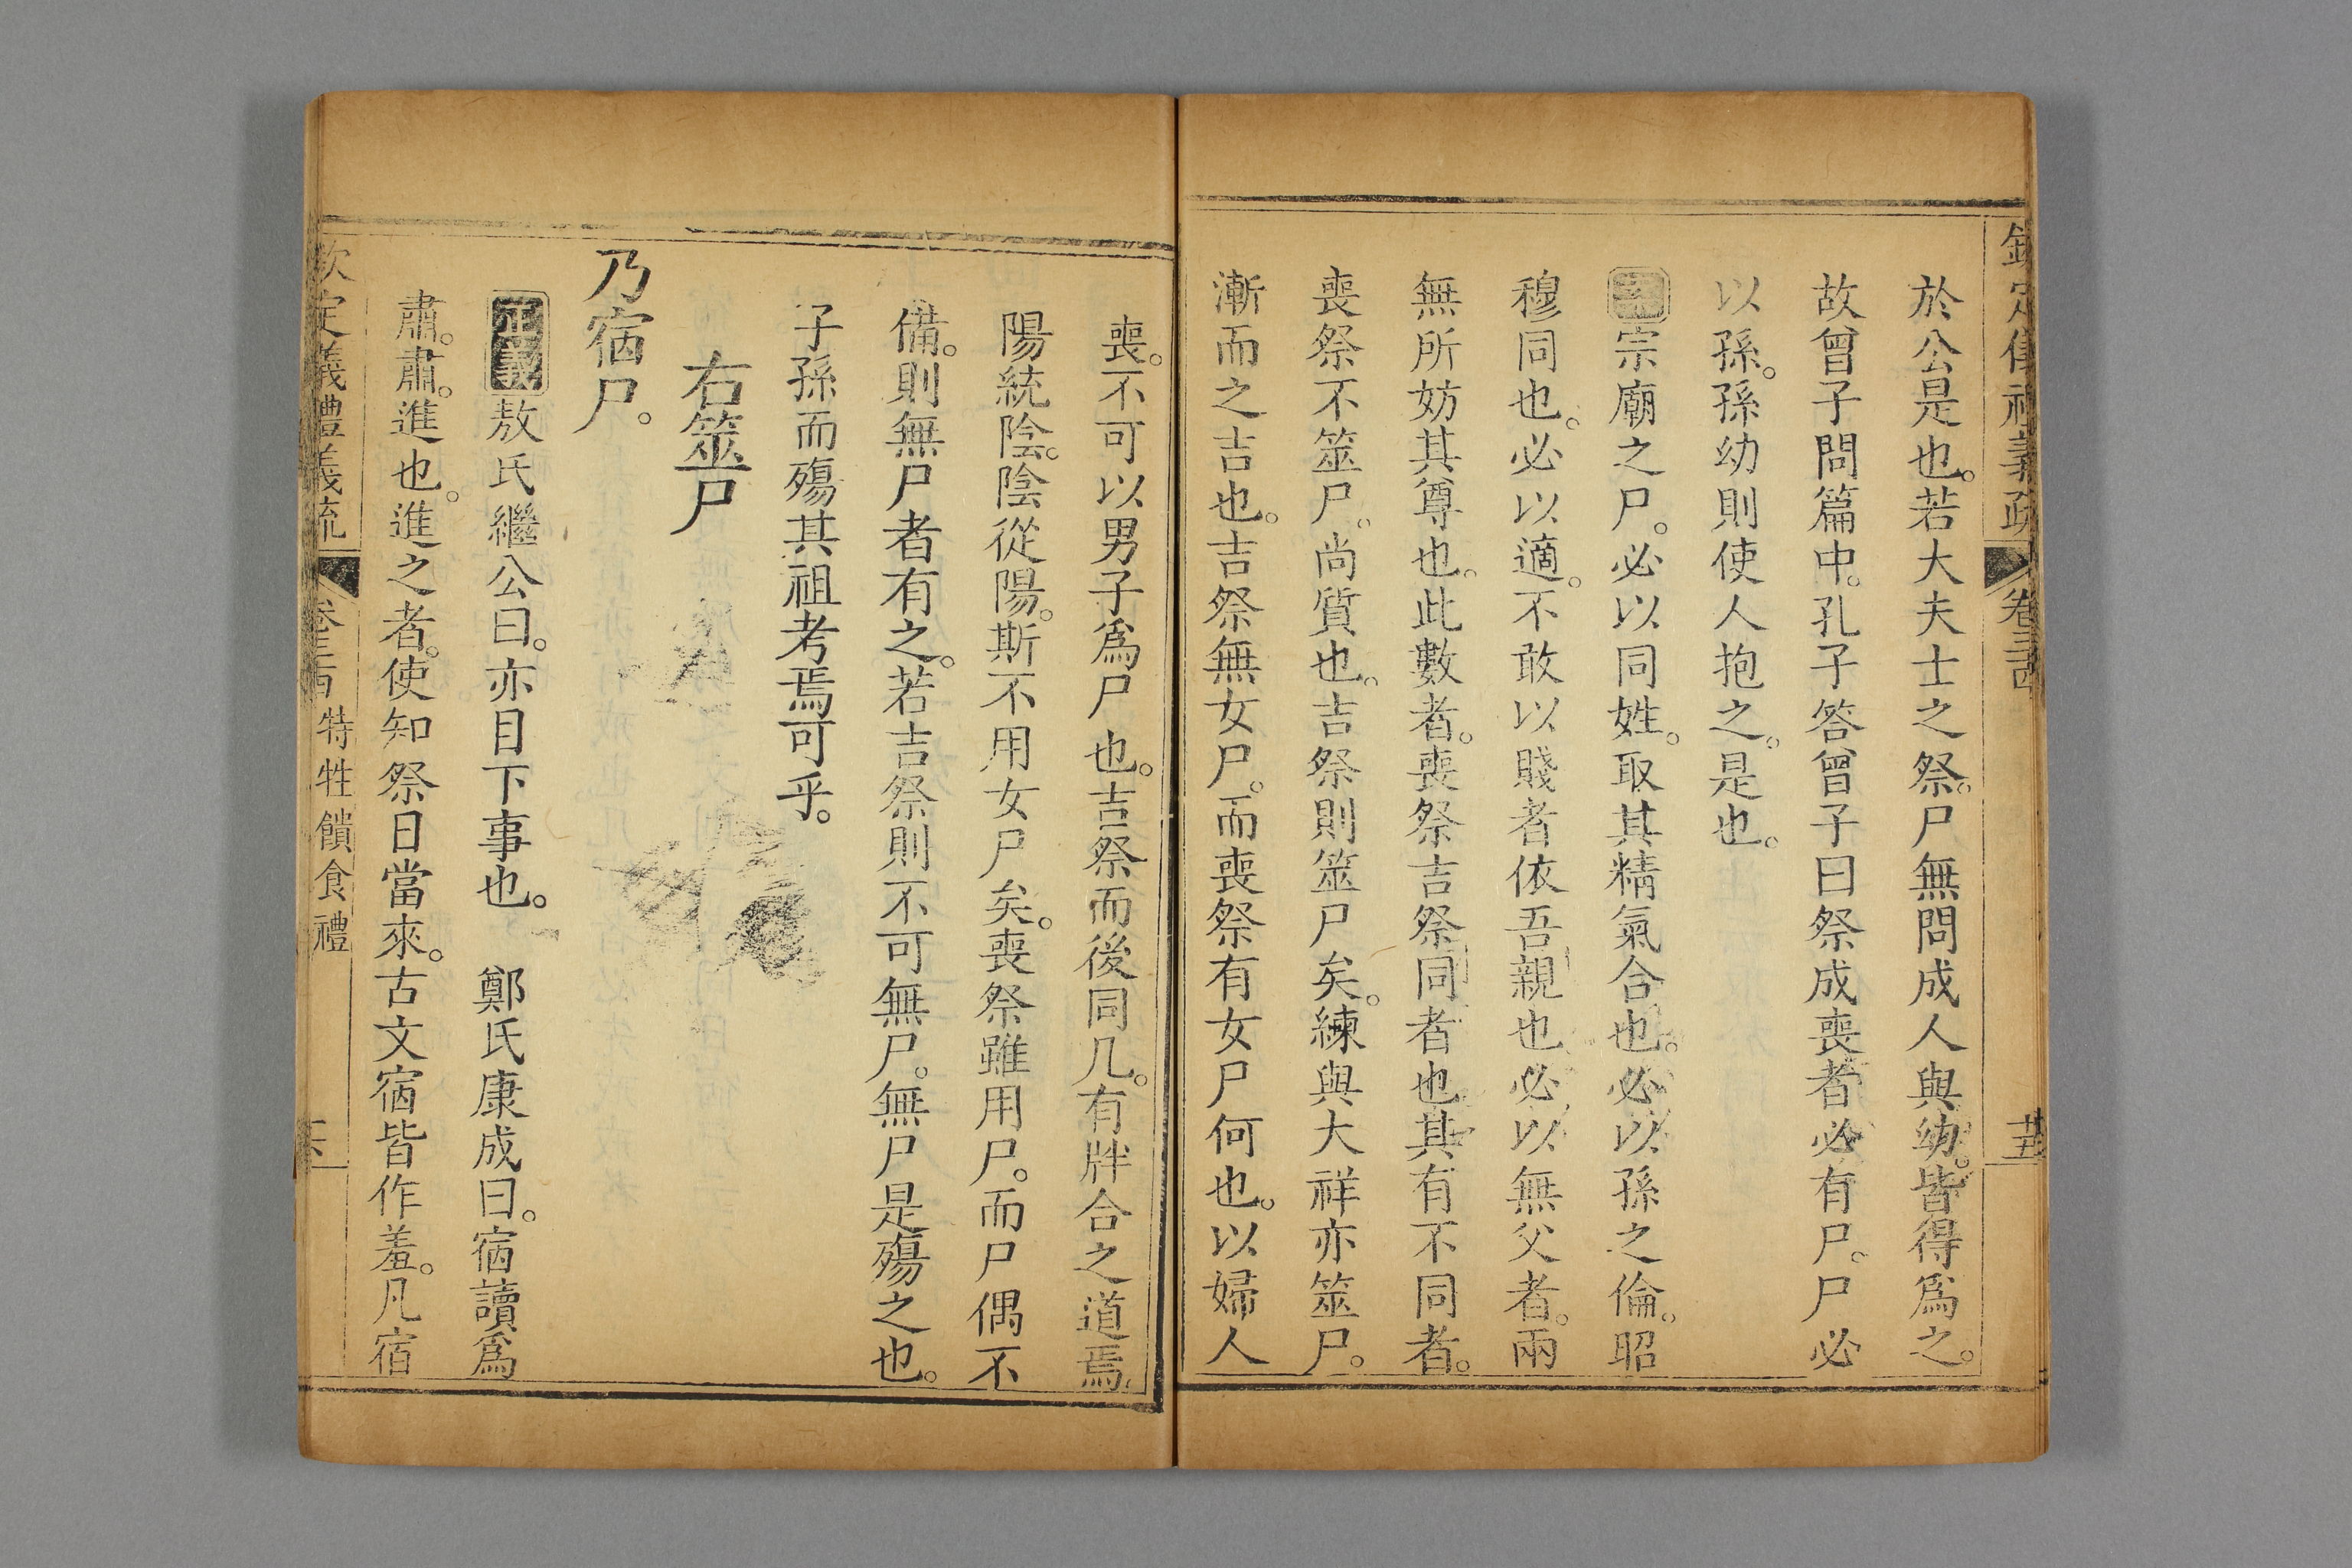 欽定儀禮義疏 卷三十四 十五
於公是也。若大夫士之祭。尸無問成人與幼。皆得爲之。
故曾子問篇中。孔子答曾子曰祭成喪者必有尸。尸必
以孫。孫幼則使人抱之。是也。
案宗廟之尸。必以同姓。取其精氣合也。必以孫之倫。昭
穆同也。必以適。不敢以賤者依吾親也必以無父者。兩
無所妨其尊也。此數者。喪祭吉祭同者也其有不同者。
喪祭不筮尸。尚質也。吉祭則筮尸矣。練與大祥亦筮尸。
漸而之吉也。吉祭無女尸。而喪祭有女尸何也。以婦人
喪。不可以男子爲尸也。吉祭而後同几。有牉合之道焉。
陽統陰。陰從陽。斯不用女尸矣。喪祭雖用尸。而尸偶不
備。則無尸者有之。若吉祭則不可無尸。無尸是殤之也。
子孫而殤其祖考焉可乎。
右筮尸
乃宿尸。
正義敖氏繼公曰。亦目下事也。 鄭氏康成曰。宿讀爲
肅。肅。進也。進之者。使知祭日當來。古文宿皆作羞。凡宿
欽定義禮義疏 卷三十四 特牲饋食禮